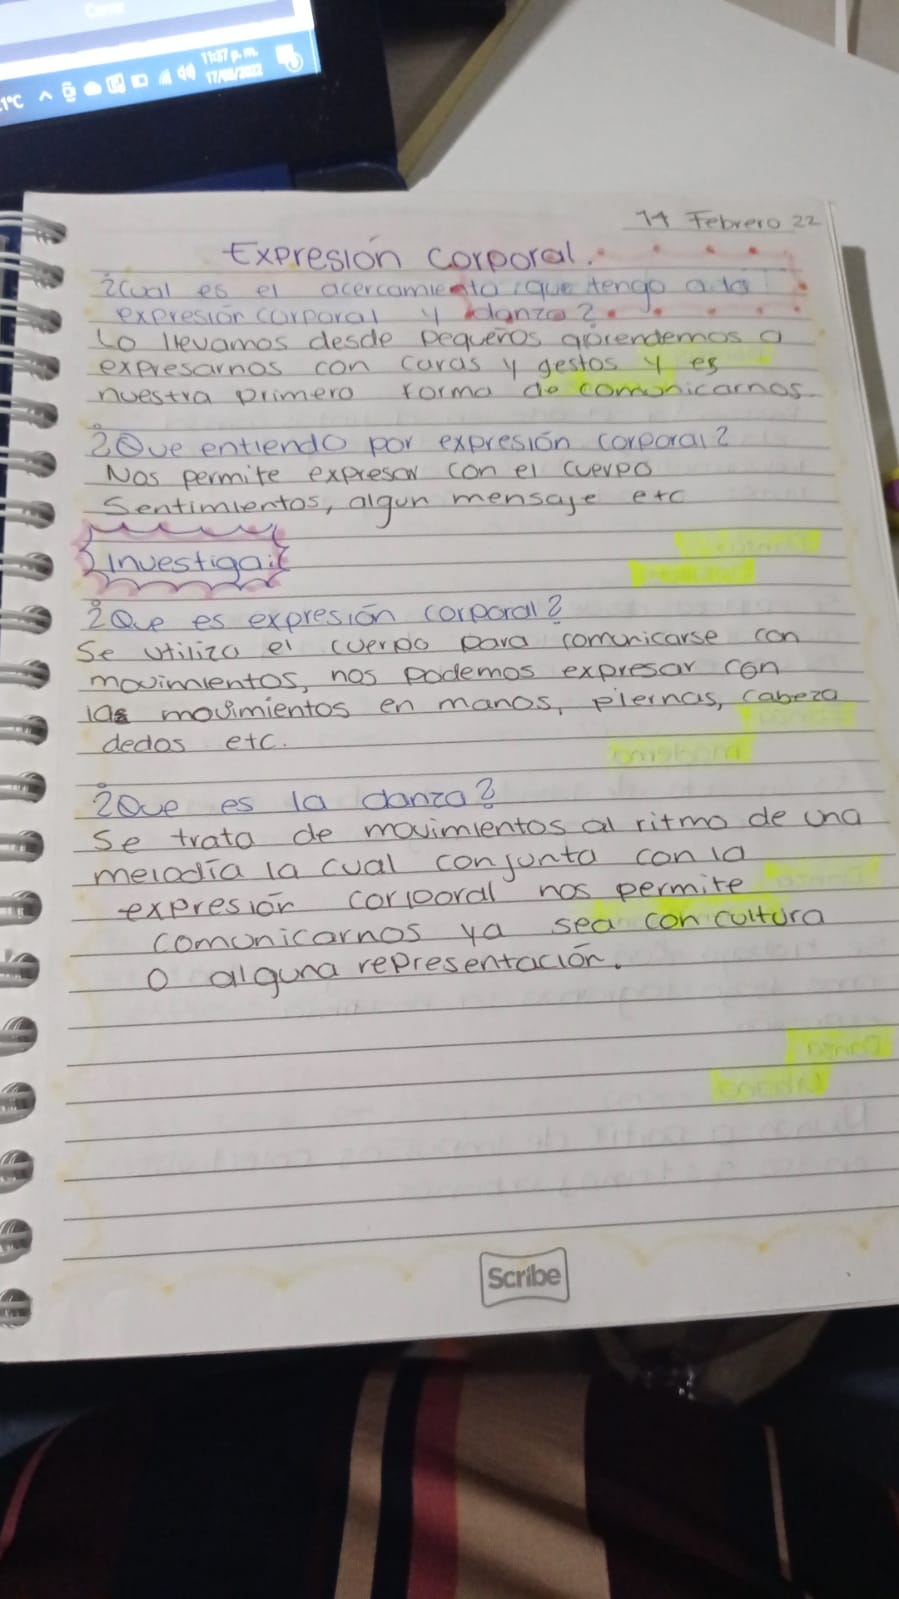 11:37 p.m.
1°C
14 Febrero 22
Expresión corporal.
¿Cual es el acercamiento que tengo a la
expresión corporal y danza?
Lo llevamos desde pequeños aprendemos a
expresarnos con caras y gestos y es
nuestra primera forma de comunicarnos.
¿Que entiendo por expresión corporal?
Nos permite expresar con el cuerpo
Sentimientos, algun mensaje etc
Investiga:
¿Que es expresión corporal?
Se utiliza el cuerpo para comunicarse con
movimientos, nos podemos expresar con
las movimientos en manos, piernas, cabeza
dedos etc.
¿Que es la danza?
Se trata de movimientos al ritmo de una
melodía la cual conjunta con la
expresión corporal nos permite
comunicarnos ya sea con cultura
o alguna representación.
Scribe